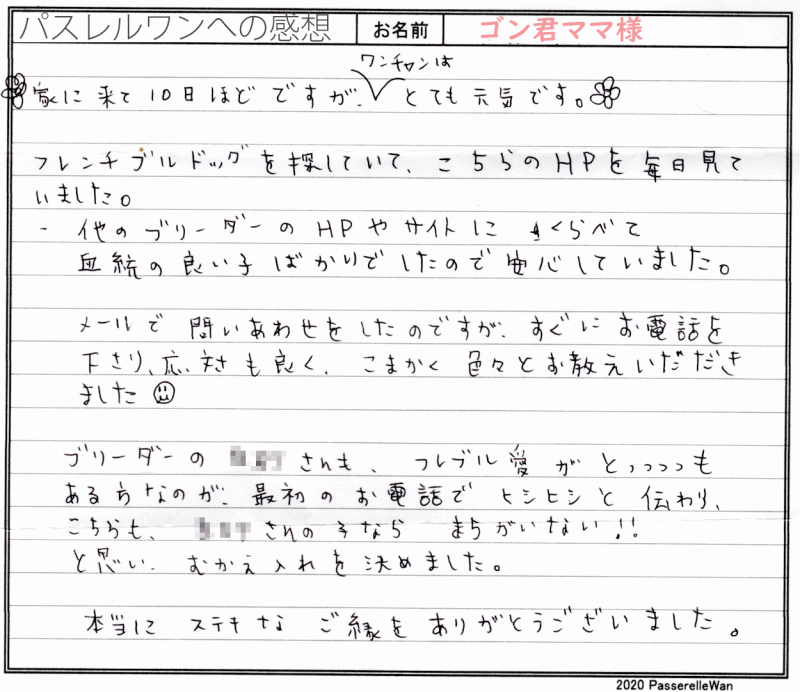 パスレルワンへの感想 お名前 ゴン君ママ様
ワンチャンは
家に来て10日ほどですが、とても元気です。
フレンチブルドッグを探していて、こちらのHPを毎日見て
いました。
- 他のブリーダーのHPやサイトにくらべて
血統の良い子ばかりでしたので安心していました。
メールで問いあわせをしたのですが、すぐにお電話を
下さり、応対も良く、こまかく色々とお教えいただだき
ました
ブリーダーの さんも、フレブル愛がとっっっっも
ある方なのが、最初のお電話でヒシヒシと伝わり、
こちらも、 さんの子なら まちがいない!!
と思い、むかえ入れを決めました。
本当にステキなご縁をありがとうございました。
2020 PasserelleWan